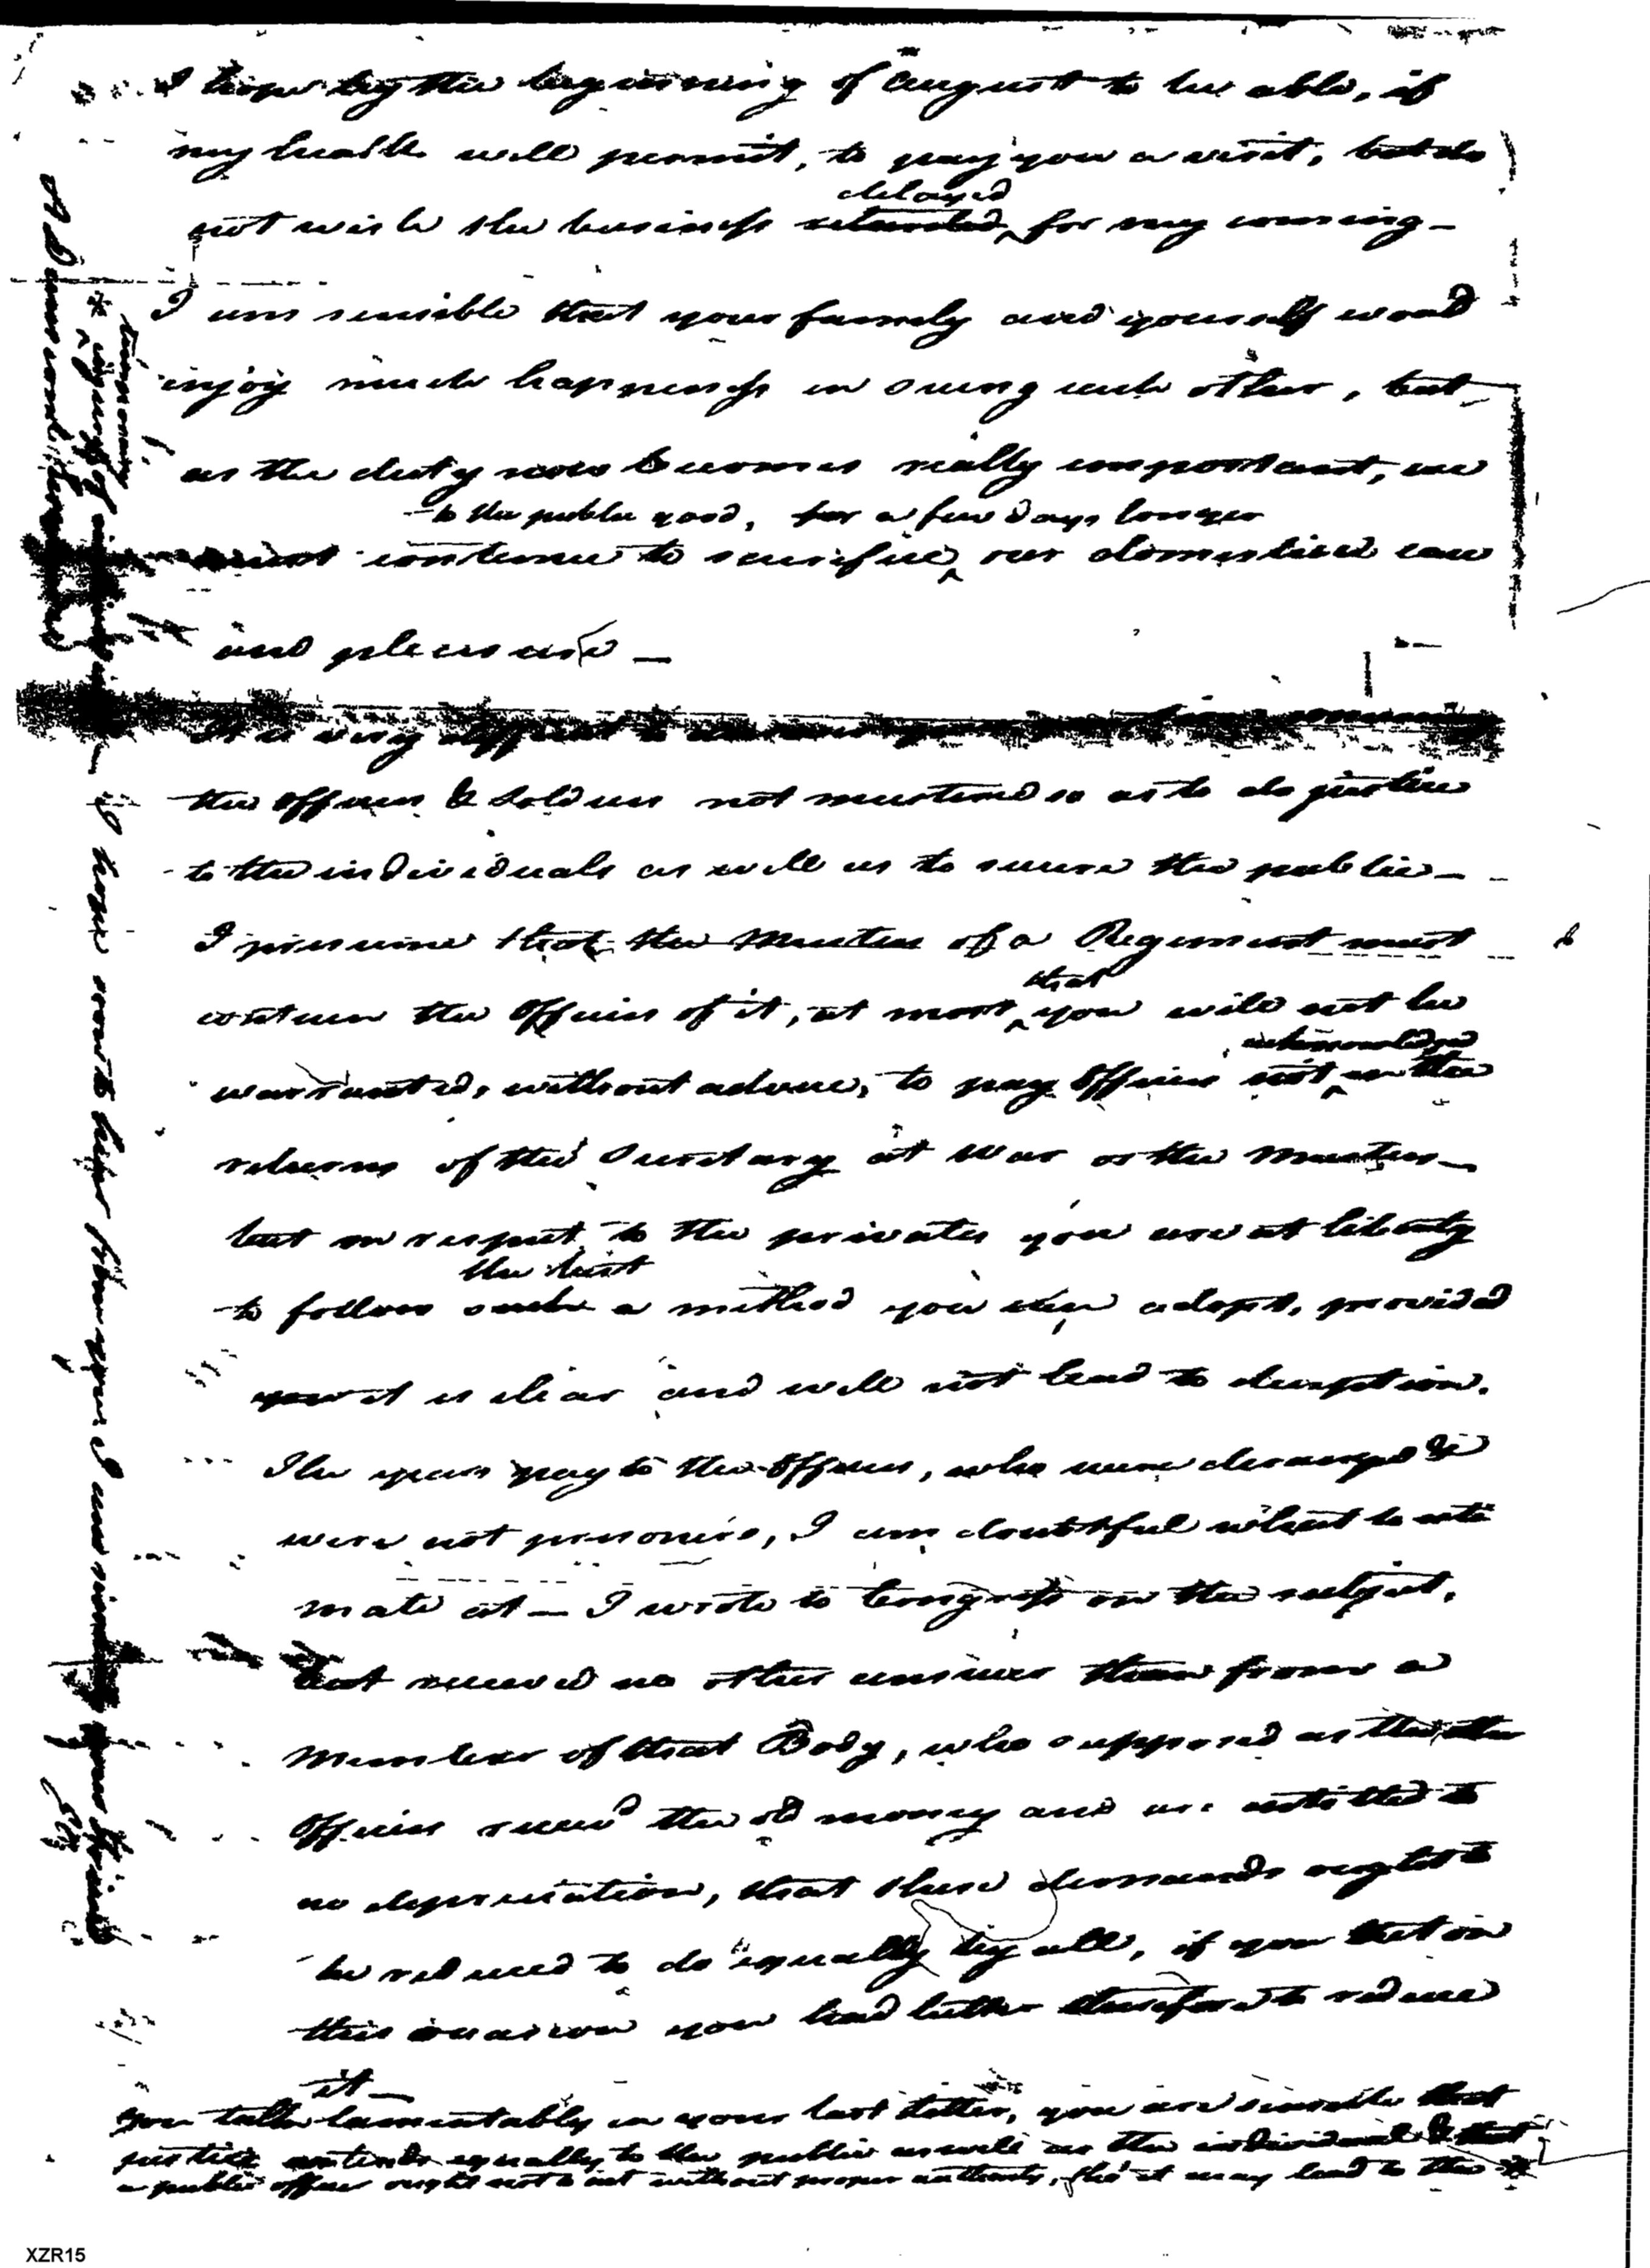 I hope by the beginning of August to be able, if
my health will permit, to pay you a visit, but do
delayed
not wish the business retarded for my coming —
I am sensible that your family and yourself would
injoy much happiness in seeing each other, but
as the duty now becomes really important, we
to the public good, for a few days longer
must continue to sacrifice our domestical ease
and pleasure —
It is very difficult to
the officers & Soldiers not mustered so as to do justice
to the individuals as well as to secure the public —
I presume that the Musters of a Regiment must
that
contain the Officers of it, at most you will not be
acknowledged
warranted, without advice, to pay Officers not in the
returns of the Secretary at War or the Musters —
but in respect to the privates you are at liberty
the best
to follow such a method you can adopt, provided
it is clear and will not lead to deception.
The years pay to the Officers, who were deranged &
were not prisoners, I am doubtful what to esti
mate at — I wrote to Congress on the subject,
but received no other answer than from a
Member of that Body, who supposed as the
Officers recd the old money and are entitled to
no depreciation, that these demands ought to
be reduced to do equally by all, if you act on
this occasion you had better therefore to reduce
it —
You talk lamentably in your last letter, you are sensible that
justice extends equally to the public as well as the individual & that
a public officer ought not to act without proper authority, tho' it may lead to the *
* injury of
testimony
I hope soon to hear from you. I am sincerely your friend